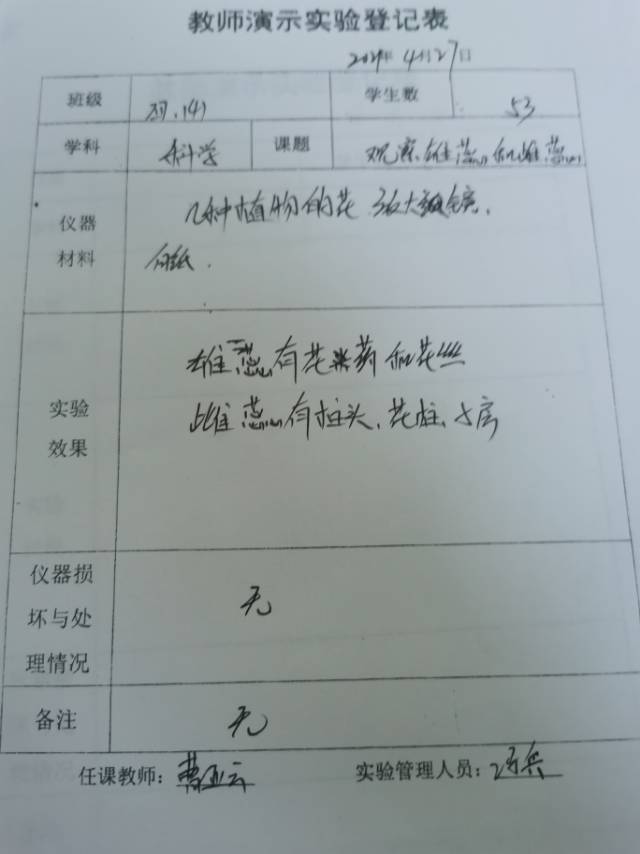 教师演示实验登记表
2021年 4月27日
班级 学生数 53
学科 科学 课题 观察雄蕊和雌蕊
仪器材料 几种植物的花 放大镜、
白纸.
实验效果 雄蕊有花药和花丝
雌蕊有柱头、花柱、子房
仪器损坏与处理情况 无
备注 无
任课教师：曹亚云 实验管理人员：